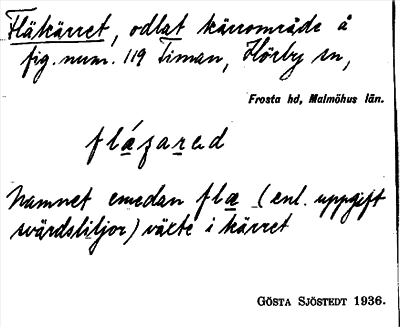 Fläkärret, odlat kärrområde å
fig. num. 119 Timan, Hörby sn,
Frosta hd, Malmöhus län.
flázared
Namnet emedan flæ (enl. uppgift
svärdsliljor) växte i kärret
GÖSTA SJÖSTEDT 1936.